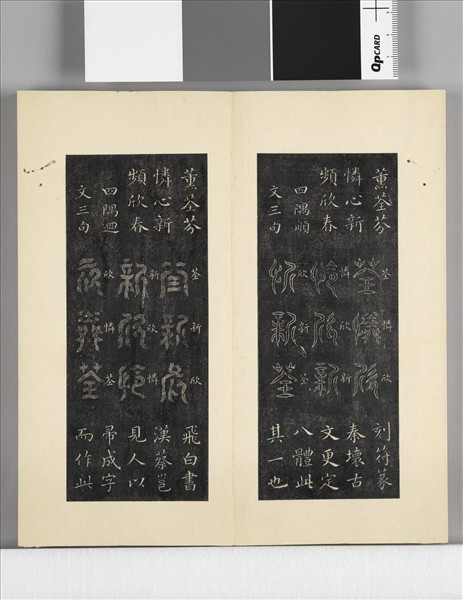 QPCARD
薰荃芬
憐心新
頻欣春
四隅順
文三句
荃憐欣
憐欣新
欣新荃
刻符篆
秦壞古
文更定
八體此
其一也
薰荃芬
憐心新
頻欣春
四隅迴
文三句
荃新欣
新欣憐
欣憐荃
飛白書
漢蔡邕
見人以
帚成字
而作此